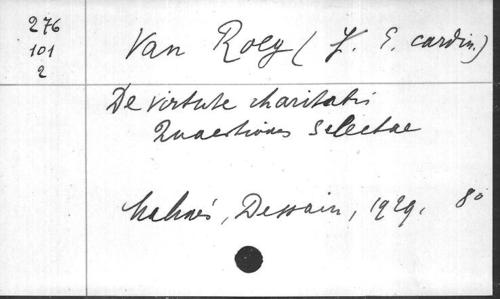 276
101
2
Van Roey (J. E. cardin.)
De virtute charitatis
Quaestiones Selectae
Malines, Dessain, 1929. 8º